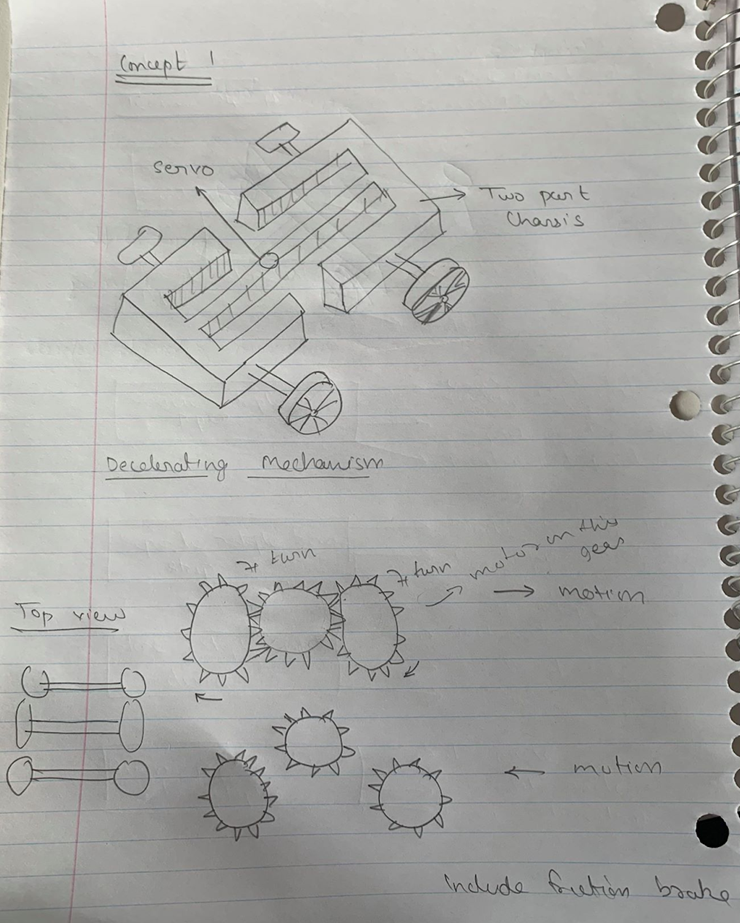 Concept 1
servo
Two part
Chassis
Decelerating Mechanism
turn
turn
motor on this
gear
motion
Top view
motion
include friction brake